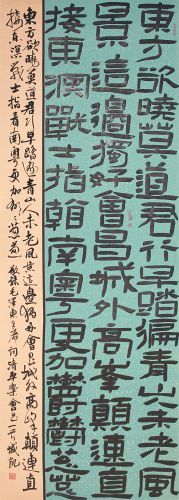 東方欲曉莫道君行早踏遍青山人未老風
景這邊獨好會昌城外高峰顛連直
接東溟戰士指看南粵更加鬱鬱葱葱
東方欲曉莫道君行早踏遍青山人未老風景這邊獨好會昌城外高峰顛連直
接東溟戰士指看南粵更加鬱〻葱〻 敬錄毛澤東主席詞清平樂會昌一首